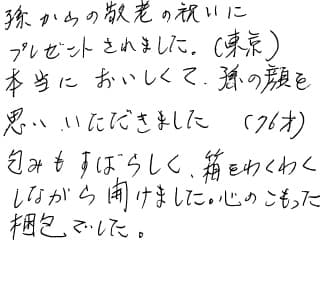 孫からの敬老の祝いに
プレゼントされました。(東京)
本当においしくて、孫の顔を
思い、いただきました (76才)
包みもすばらしく、箱をわくわく
しながら開けました。心のこもった
梱包でした。